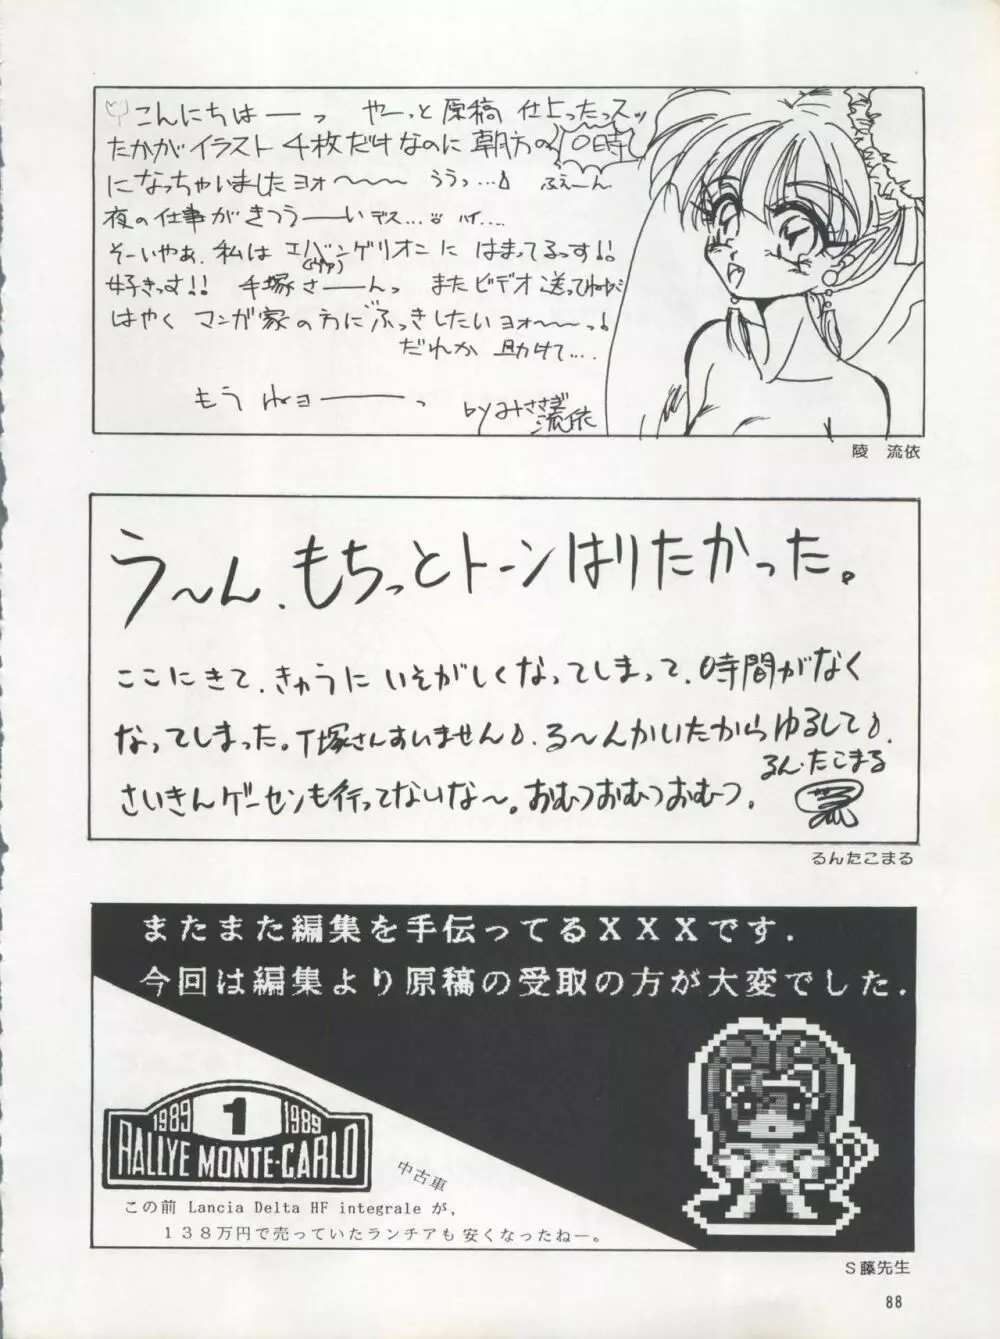 こんにちはーーっ やーっと原稿 仕上ったっスッ
たかがイラスト 4枚だけなのに 朝方の10時
になっちゃいましたヨォ〜〜〜 ううっ…♪ ふぇーん
夜の仕事がきつうーーいデス… ハイ….
そーいやぁ、私は エバンゲリオンに はまてるっす!!
(ヴァ)
好きっす!! 手塚さーーんっ またビデオ送ってね
はやく マンガ家の方に ふっきしたいヨォ〜〜っ♪
だれか 助けて….
もう ねヨーーーーっ
byみささぎ
流依
陵 流依
う〜ん、もちっとトーンはりたかった。
ここにきて、きゅうに いそがしくなってしまって、時間がなく
なってしまった。T塚さんすいません♪、る〜んかいたから ゆるして♪、
るん・たこまる
さいきんゲーセンも行ってないな〜。おむつおむつおむつ。
るんたこまる
またまた編集を手伝ってるXXXです.
今回は編集より原稿の受取の方が大変でした.
1989 1 1989
RALLYE MONTE-CARLO
中古車
この前 Lancia Delta HF integrale が,
138万円で売っていたランチアも 安くなったねー。
S藤先生
88